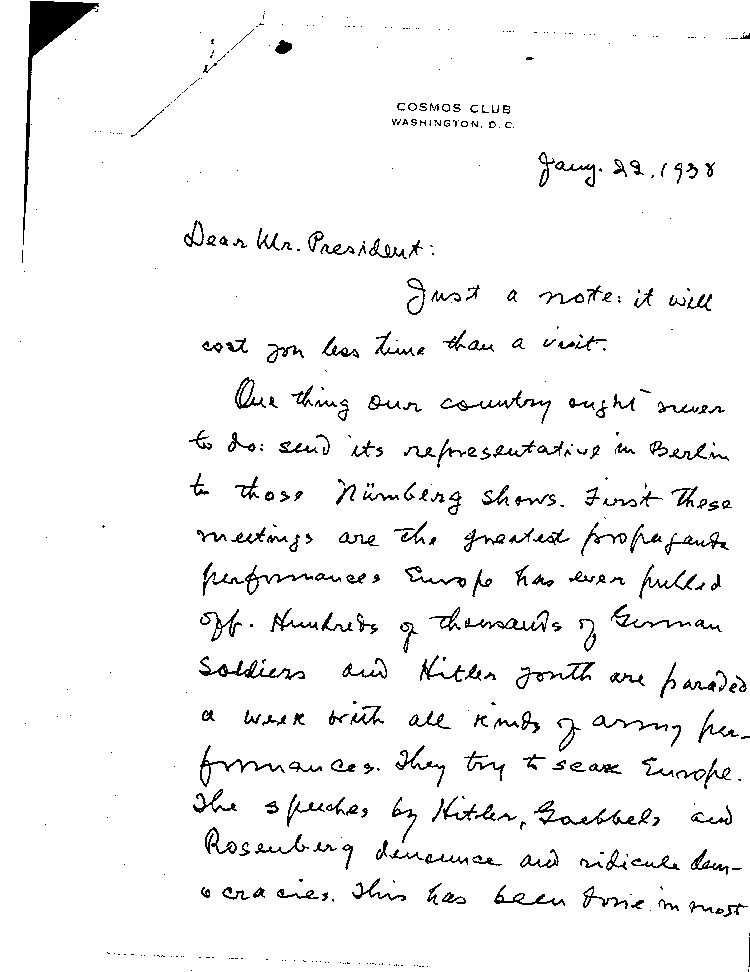 COSMOS CLUB
WASHINGTON, D. C.
Jany. 22, 1938
Dear Mr. President:
Just a note: it will
cost you less time than a visit.
One thing our country ought never
to do: send its representative in Berlin
to those Nürnberg shows. First these
meetings are the greatest propaganda
performances Europe has ever pulled
off. Hundreds of thousands of German
soldiers and Hitler youth are paraded
a week with all kinds of army per-
formances. They try to scare Europe.
The speeches by Hitler, Goebbels and
Rosenberg denounce and ridicule dem-
ocracies. This has been done in most